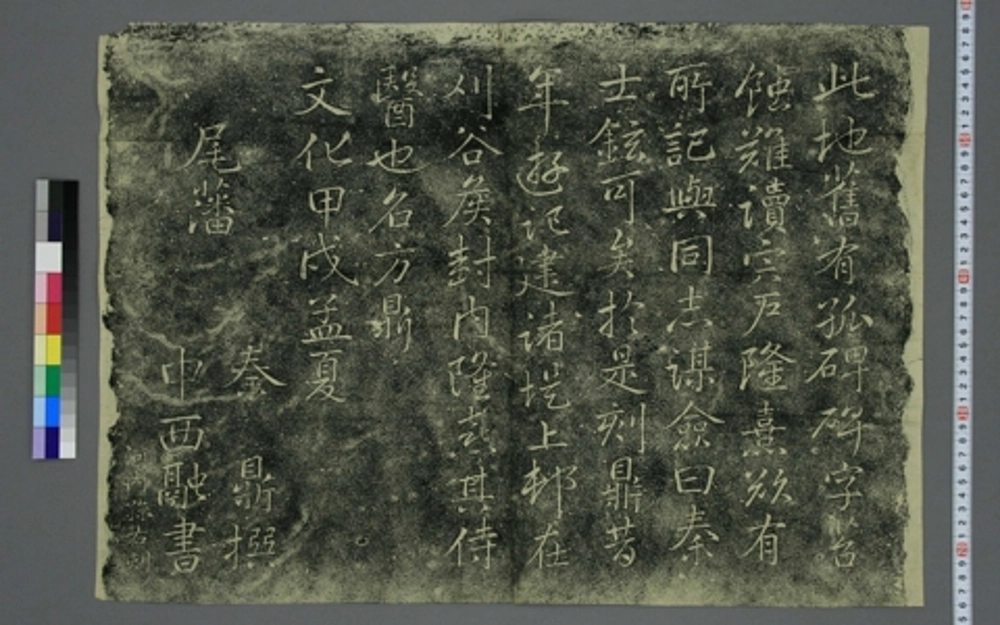 此地舊有孤碑碑字苔
蝕難讀宍戶隆熹欲有
所記與同志謀僉曰秦
士鉉可矣於是刻鼎昔
年遊記建諸堤上邨在
刈谷矦封内隆熹其侍
醫也名方鼎
文化甲戌孟夏
尾藩 秦 鼎撰
中西融書